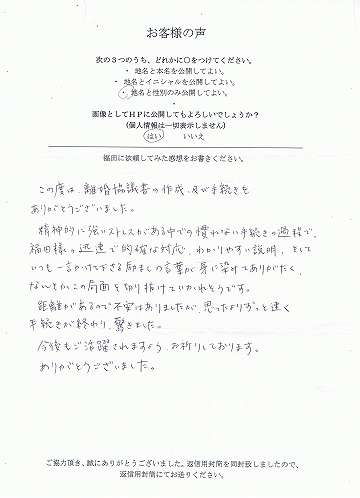 お客様の声
次の3つのうち、どれかに○をつけてください。
・地名と本名を公開してよい。
・地名とイニシャルを公開してよい。
・地名と性別のみ公開してよい。
画像としてHPに公開してもよろしいでしょうか?
(個人情報は一切表示しません)
はい いいえ
福田に依頼してみた感想をお書きください。
この度は、離婚協議書の作成、及び手続きを
ありがとうございました。
精神的に強いストレスがある中での慣れない手続きの過程で、
福田様の迅速で的確な対応、わかりやすい説明、そして
いつも一言かけて下さる励ましの言葉が身に染みてありがたく、
なんとかこの局面を切り抜けていかれそうです。
距離があるので不安はありましたが、思ったよりずっと速く
手続きが終わり、驚きました。
今後もご活躍されますよう、お祈りしております。
ありがとうございました。
ご協力頂き、誠にありがとうございました。返信用封筒を同封致しましたので、
返信用封筒にてお送りください。